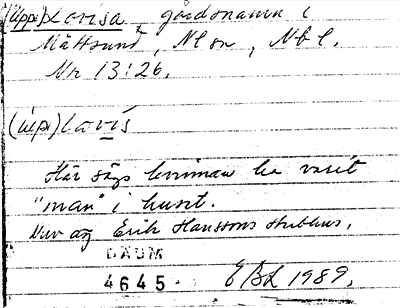 (uppi) Lovisa, gårdsnamn i
Måttsund, Nl sn, Nbl.
Nr 13:26.
(úpi) lavis
Här sägs kvinnan ha varit
"man" i huset.
Nuv äg Erik Hanssons sterbhus.
DAUM
4645. EBL 1989.